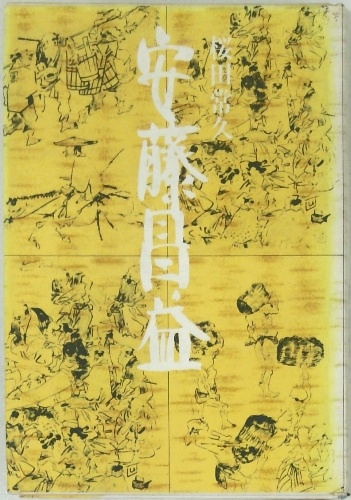 桜田常久
安藤昌益